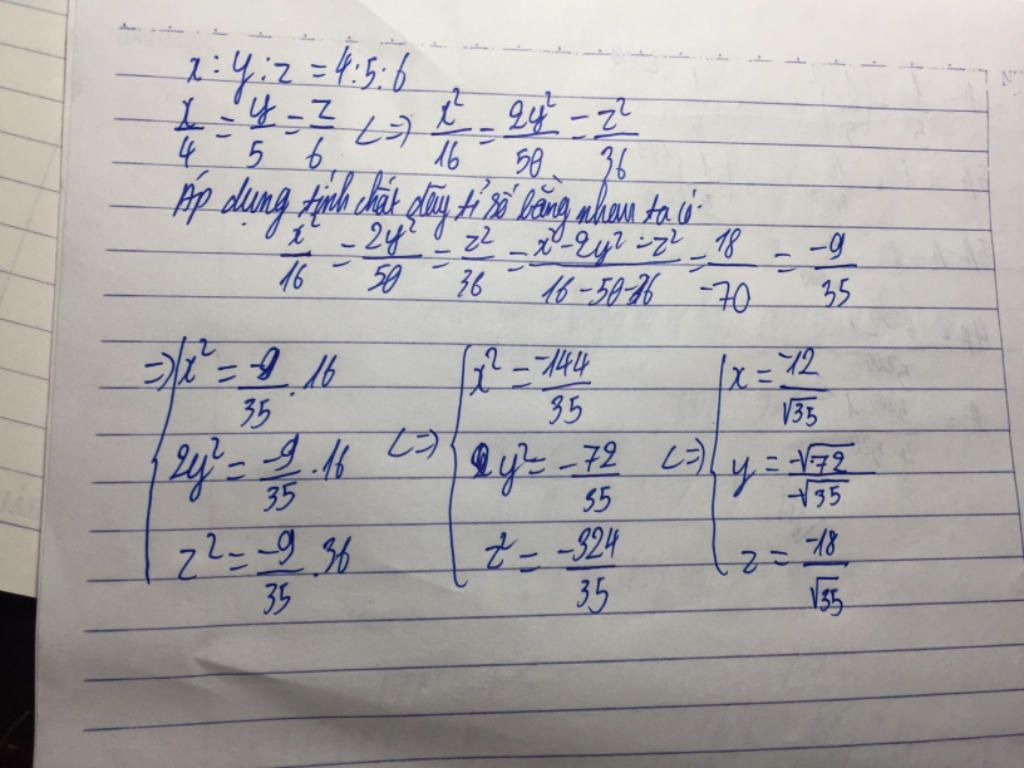 x : y : z = 4 : 5 : 6
x/4 = y/5 = z/6 <=> x²/16 = 2y²/50 = z²/36
Áp dụng tính chất dãy tỉ số bằng nhau ta có:
x²/16 = 2y²/50 = z²/36 = x²-2y²-z²/16-50-36 = 18/-70 = -9/35
=> x² = -9/35 . 16 <=> x² = -144/35 <=> x = -12/√35
2y² = -9/35 . 16 2y² = -72/35 y = -√72/-√35
z² = -9/35 . 36 z² = -324/35 z = -18/√35